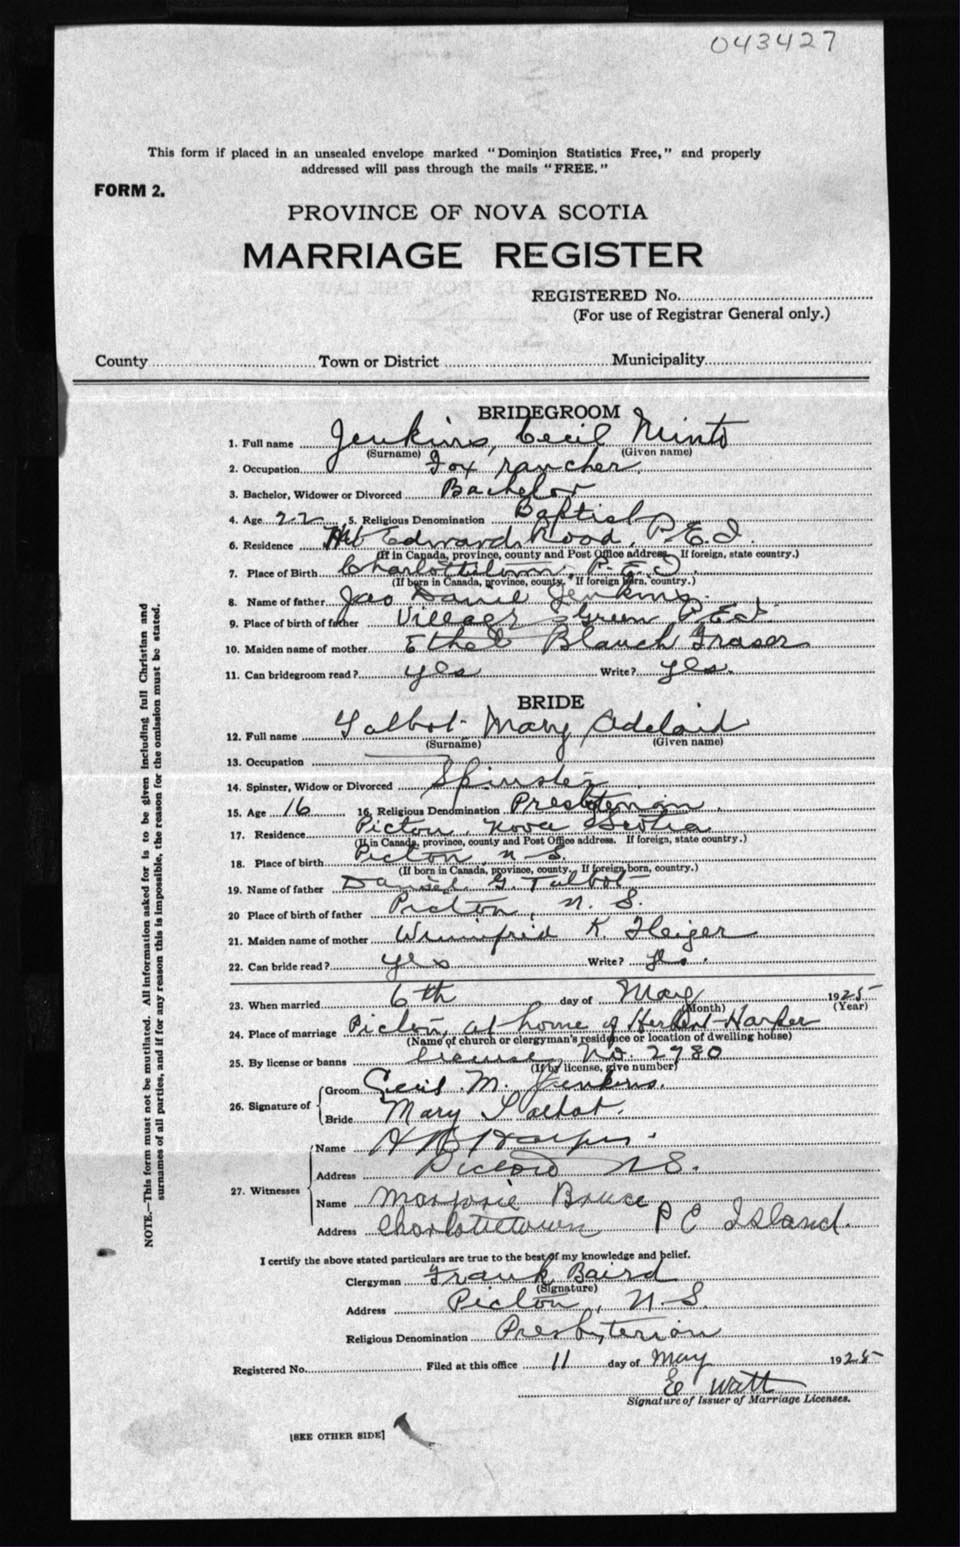 043427
This form if placed in an unsealed envelope marked "Dominion Statistics Free," and properly
addressed will pass through the mails "FREE."
FORM 2.
PROVINCE OF NOVA SCOTIA
MARRIAGE REGISTER
REGISTERED No.
(For use of Registrar General only.)
County Town or District Municipality
BRIDEGROOM
1. Full name Jenkins, Cecil Minto
(Surname) (Given name)
2. Occupation Fox rancher
3. Bachelor, Widower or Divorced Bachelor
4. Age 22 5. Religious Denomination Baptist
6. Residence P.E.I.
(If in Canada, province, county and Post Office address. If foreign, state country.)
7. Place of Birth Charlottetown, P.E.I.
(If born in Canada, province, county. If foreign born, country.)
8. Name of father Jas Daniel Jenkins.
9. Place of birth of father Village Green P.E.I.
10. Maiden name of mother Ethel Blanch Fraser
11. Can bridegroom read? yes Write? yes.
BRIDE
12. Full name Talbot Mary Adelaid
(Surname) (Given name)
13. Occupation
14. Spinster, Widow or Divorced Spinster
15. Age 16 16. Religious Denomination Presbterian
17. Residence Pictou, Nova Scotia
(If in Canada, province, county and Post Office address. If foreign, state country.)
18. Place of birth Pictou, N.S.
(If born in Canada, province, county. If foreign born, country.)
19. Name of father Daniel G. Talbot
20 Place of birth of father Pictou, N.S.
21. Maiden name of mother Winnifrid K.
22. Can bride read? yes Write? yes.
23. When married 6th day of May 1925
(Month) (Year)
24. Place of marriage Pictou, at home of Herbert Harper
(Name of church or clergyman's residence or location of dwelling house)
25. By license or banns license, No. 2780
(If by license, give number)
26. Signature of
Groom Cecil M. Jenkins.
Bride Mary Talbot.
27. Witnesses
Name H B Harper.
Address Pictou N S.
Name Marjorie Bruce
Address Charlottetown P E Island.
I certify the above stated particulars are true to the best of my knowledge and belief.
Clergyman Frank Baird
(Signature)
Address Pictou, N.S.
Religious Denomination Presbyterian
Registered No. Filed at this office 11 day of May 1925
E Watt
Signature of Issuer of Marriage Licenses.
[SEE OTHER SIDE]
NOTE.—This form must not be mutilated. All information asked for is to be given including full Christian and
surnames of all parties, and if for any reason this is impossible, the reason for the omission must be stated.